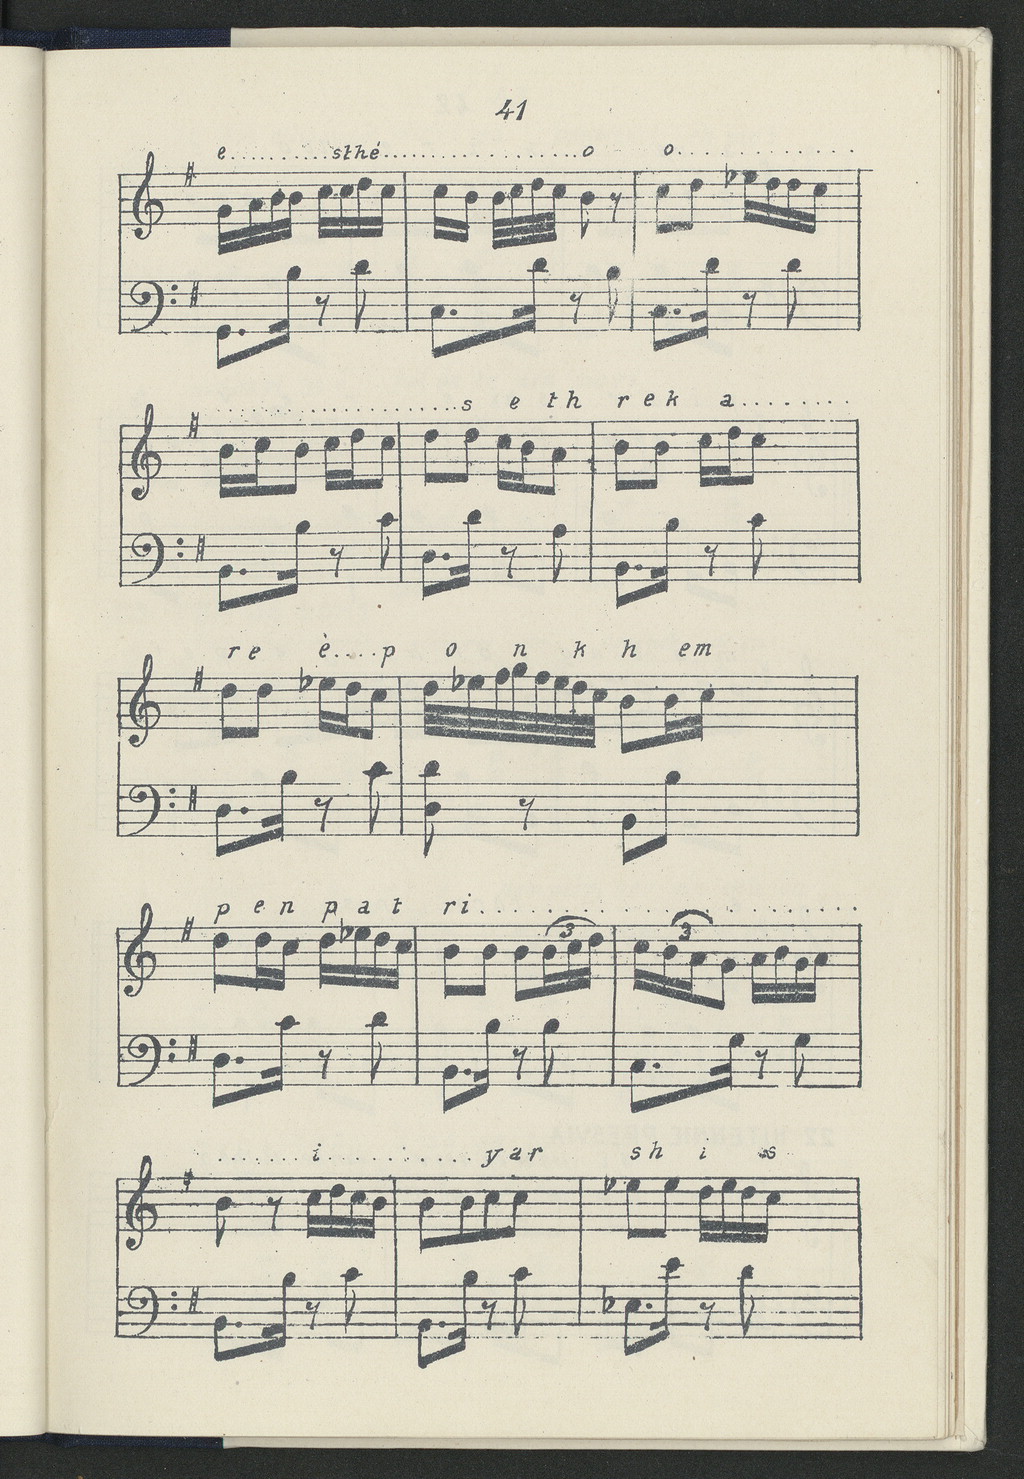 41
e..........sthé..................o o................
.......................s e th r e k a.........
re è....p o n k h em
p e n p a t ri...........................
3 3
.......i...........yar sh i s